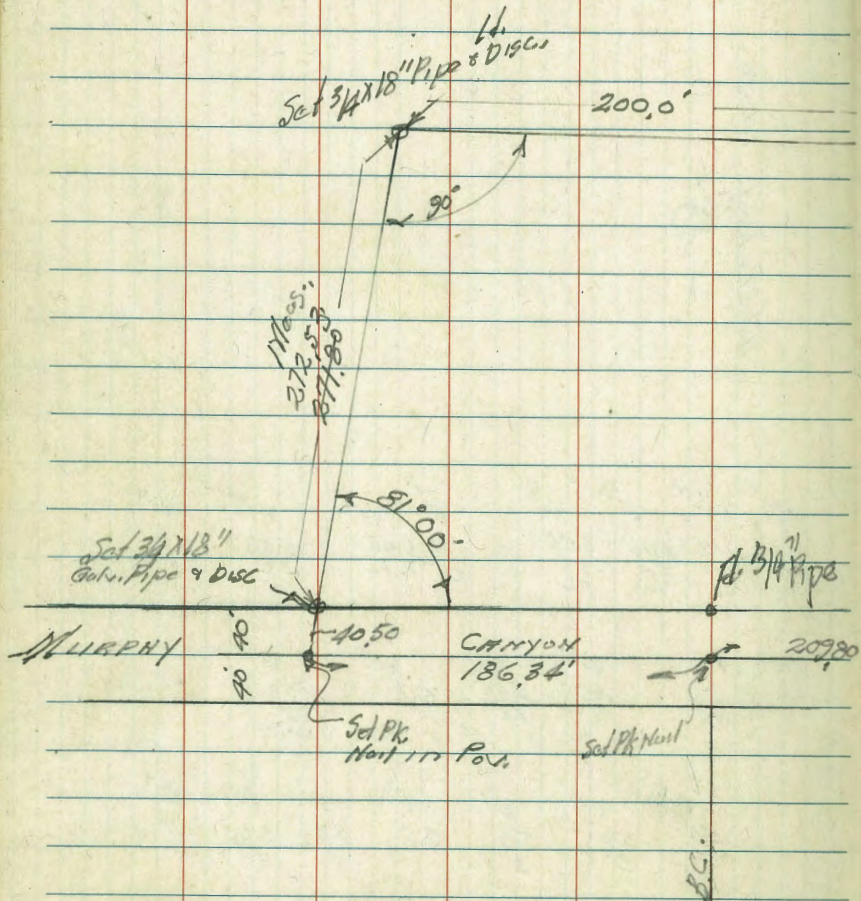 fd.
Set 3/4 x 18" Pipe & Disc.
200.0'
90°
Meas.
272.53
271.98
81°00'
Set 3/4 x 18"
Galv. Pipe & Disc
fd. 3/4" Pipe
MURPHY
40' 40'
40.50
CANYON
186.34'
209.80
Set PK
Nail in Pav.
Set Pk Nail
B.C.